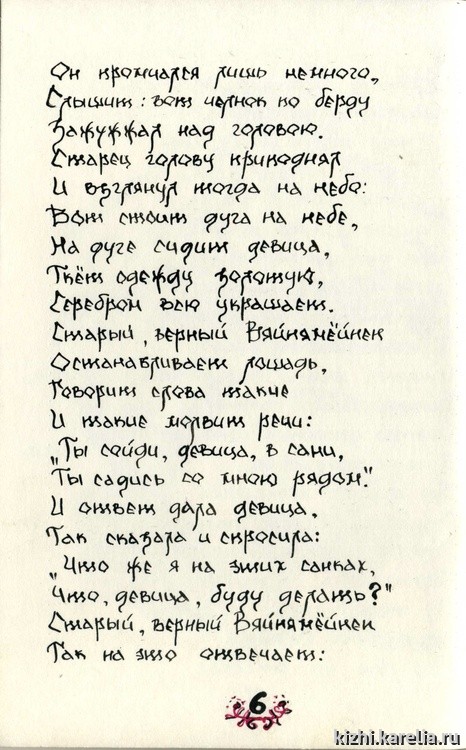 Он промчался лишь немного,
Слышит: вот челнок по берду
Зажужжал над головою.
Старец голову приподнял
И взглянул тогда на небо:
Вот стоит дуга на небе,
На дуге сидит девица,
Ткёт одежду золотую,
Серебром всю украшает.
Старый, верный Вяйнямёйнен
Останавливает лошадь,
Говорит слова такие
И такие молвит речи:
„Ты сойди, девица, в сани,
„Ты садись со мною рядом."
И ответ дала девица,
Так сказала и спросила:
„Что же я на этих санках,
„Что, девица, буду делать?"
Старый, верный Вяйнямёйнен
Так на это отвечает:
6
kizhi.karelia.ru